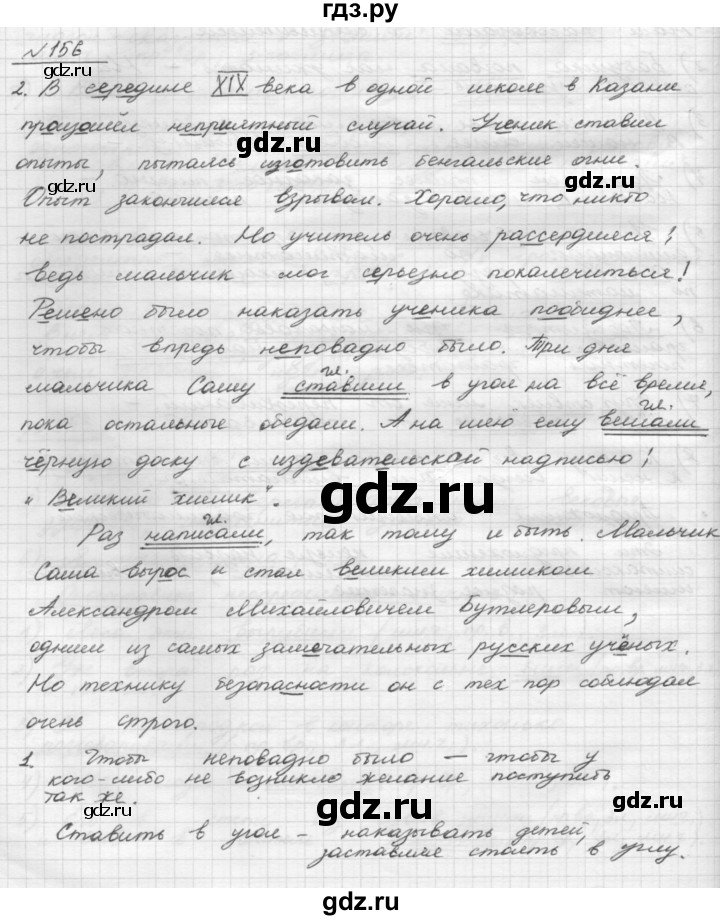 гдз.ру
№156
2. В середине XIX века в одной школе в Казани
произошёл неприятный случай. Ученик ставил
gdz.ru
опыты, пытаясь изготовить бенгальские огни.
Опыт закончился взрывом. Хорошо, что никто
не пострадал. Но учитель очень рассердился:
ведь мальчик мог серьезно покалечиться!
Решено было наказать ученика пообиднее,
чтобы впредь неповадно было. Три дня
гл.
мальчика Сашу ставили в угол на всё время,
гл.
пока остальные обедали. А на шею ему вешали
чёрную доску с издевательской надписью:
gdz.ru
„Великий химик".
гл.
Раз написали, так тому и быть. Мальчик
Саша вырос и стал великим химиком
Александром Михайловичем Бутлеровым,
одним из самых замечательных русских учёных.
gdz.ru
Но технику безопасности он с тех пор соблюдал
очень строго.
1. Чтобы неповадно было — чтобы у
кого-либо не возникло желание поступить
так же.
gdz.ru
Ставить в угол – наказывать детей,
заставляя стоять в углу.
gdz.ru